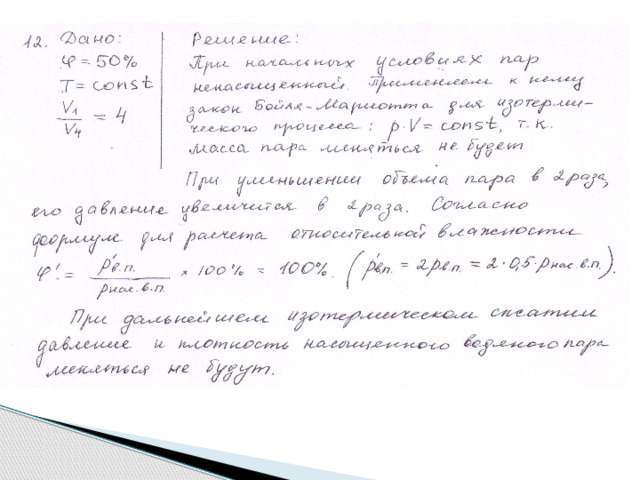 12. Дано:
φ = 50%
T = const
V₁/V₄ = 4
Решение:
При начальных условиях пар
ненасыщенный. Применяем к нему
закон Бойля-Мариотта для изотерми-
ческого процесса: p·V = const, т.к.
масса пара меняться не будет
При уменьшении объема пара в 2 раза,
его давление увеличится в 2 раза. Согласно
формуле для расчета относительной влажности
φ' = p'в.п. / pнас.в.п. × 100% = 100%. (p'в.п. = 2pв.п. = 2·0,5·pнас.в.п.).
При дальнейшем изотермическом сжатии
давление и плотность насыщенного водяного пара
меняться не будут.